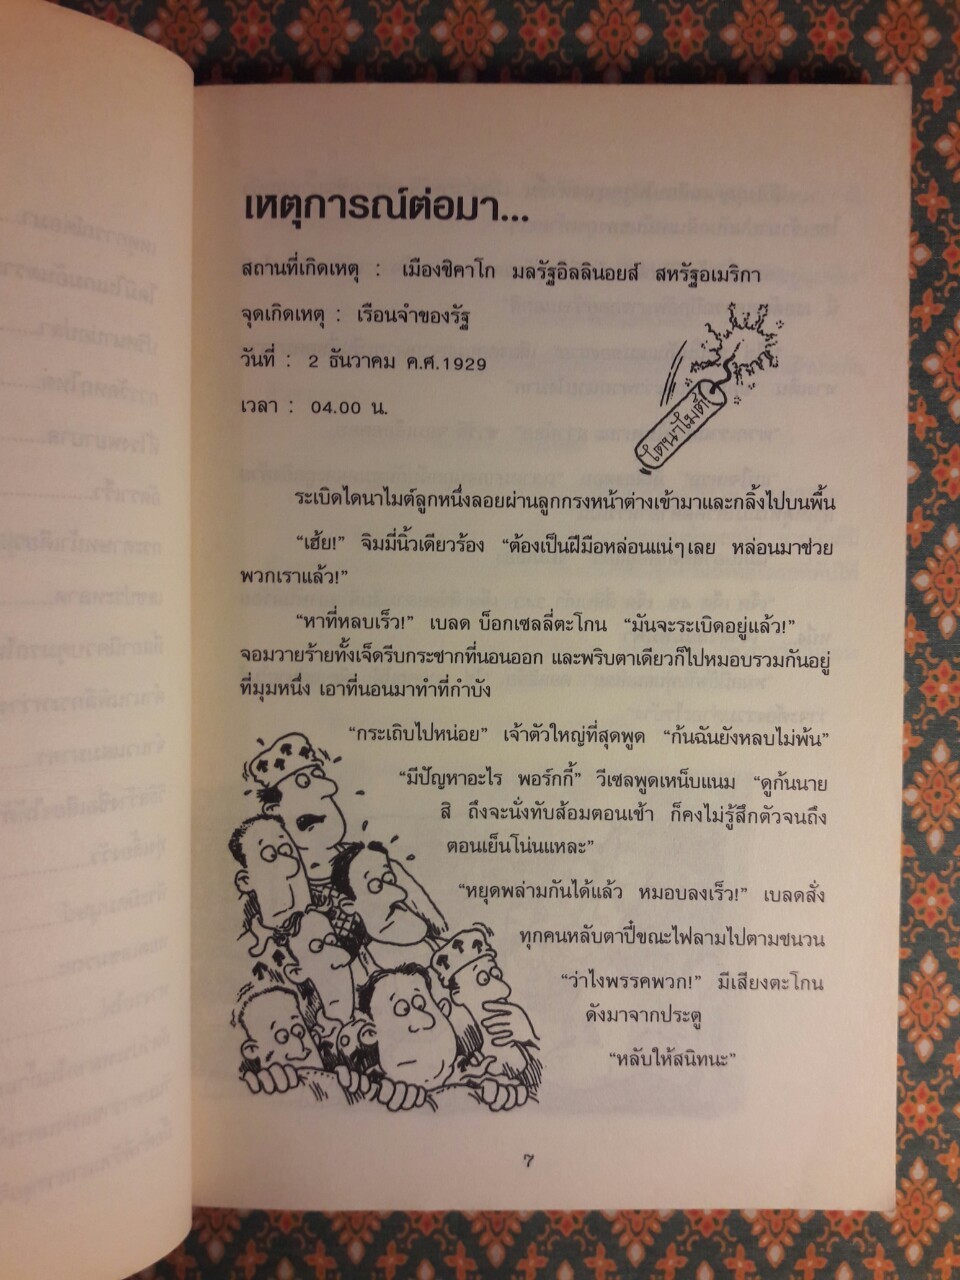 เหตุการณ์ต่อมา...
สถานที่เกิดเหตุ : เมืองชิคาโก มลรัฐอิลลินอยส์ สหรัฐอเมริกา
จุดเกิดเหตุ : เรือนจำของรัฐ
วันที่ : 2 ธันวาคม ค.ศ.1929
เวลา : 04.00 น.
ไดนาไมต์!
ระเบิดไดนาไมต์ลูกหนึ่งลอยผ่านลูกกรงหน้าต่างเข้ามาและกลิ้งไปบนพื้น
“เฮ้ย!” จิมมี่นิ้วเดียวร้อง “ต้องเป็นฝีมือหล่อนแน่ๆ เลย หล่อนมาช่วย
พวกเราแล้ว!”
“หาที่หลบเร็ว!” เบลด บ็อกเซลลี่ตะโกน “มันจะระเบิดอยู่แล้ว!”
จอมวายร้ายทั้งเจ็ดรีบกระชากที่นอนออก และพริบตาเดียวก็ไปหมอบรวมกันอยู่
ที่มุมหนึ่ง เอาที่นอนมาทำที่กำบัง
“กระเถิบไปหน่อย” เจ้าตัวใหญ่ที่สุดพูด “ก้นฉันยังหลบไม่พ้น”
“มีปัญหาอะไร พอร์กกี้” วีเซลพูดเหน็บแนม “ดูก้นนาย
สิ ถึงจะนั่งทับส้อมตอนเช้า ก็คงไม่รู้สึกตัวจนถึง
ตอนเย็นโน่นแหละ”
“หยุดพล่ามกันได้แล้ว หมอบลงเร็ว!” เบลดสั่ง
ทุกคนหลับตาปี๋ขณะไฟลามไปตามชนวน
“ว่าไงพรรคพวก!” มีเสียงตะโกน
ดังมาจากประตู
“หลับให้สนิทนะ”
๗